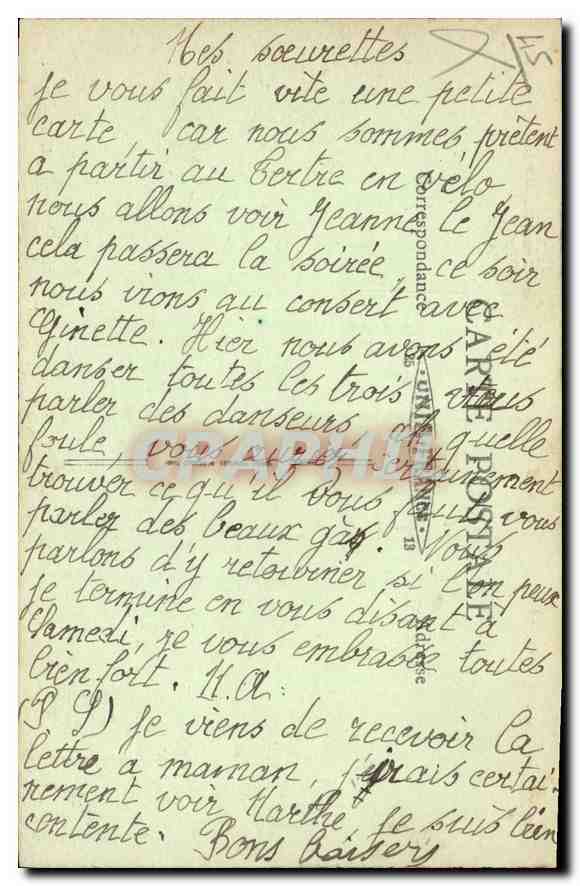 45
Mes sœurettes
je vous fait vite une petite
carte, car nous sommes prètent
a partir au Tertre en vélo,
nous allons voir Jeanne le Jean
cela passera la soirée, ce soir
nous irons au consert avec
Ginette. Hier nous avons été
danser toutes les trois vous
parler des danseurs et quelle
foule, vous auriez serтainement
trouver ce qu'il vous faut vous
parler des beaux gàs. Nous
parlons d'y retourner si l'on peux
je termine en vous disant à
Samedi, je vous embrasse toutes
bien fort. M.A.
(P S) je viens de recevoir la
lettre a maman, j'irais certai-
nement voir Marthe, je suis bien
contente. Bons baisers
CARTE POSTALE
Correspondance
Adresse
25 UNIS FRANCE 13
CPAPHIL